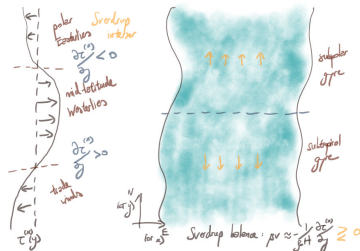 polar
Easterlies
Sverdrup
interior
∂τ⁽ˣ⁾/∂y < 0
mid-latitude
Westerlies
∂τ⁽ˣ⁾/∂y > 0
trade
winds
τ⁽ˣ⁾(y)
subpolar
gyre
subtropical
gyre
N
(or y)
E
(or x)
Sverdrup balance: βv ≈ - 1/ρ₀H ∂τ⁽ˣ⁾/∂y ≷ 0